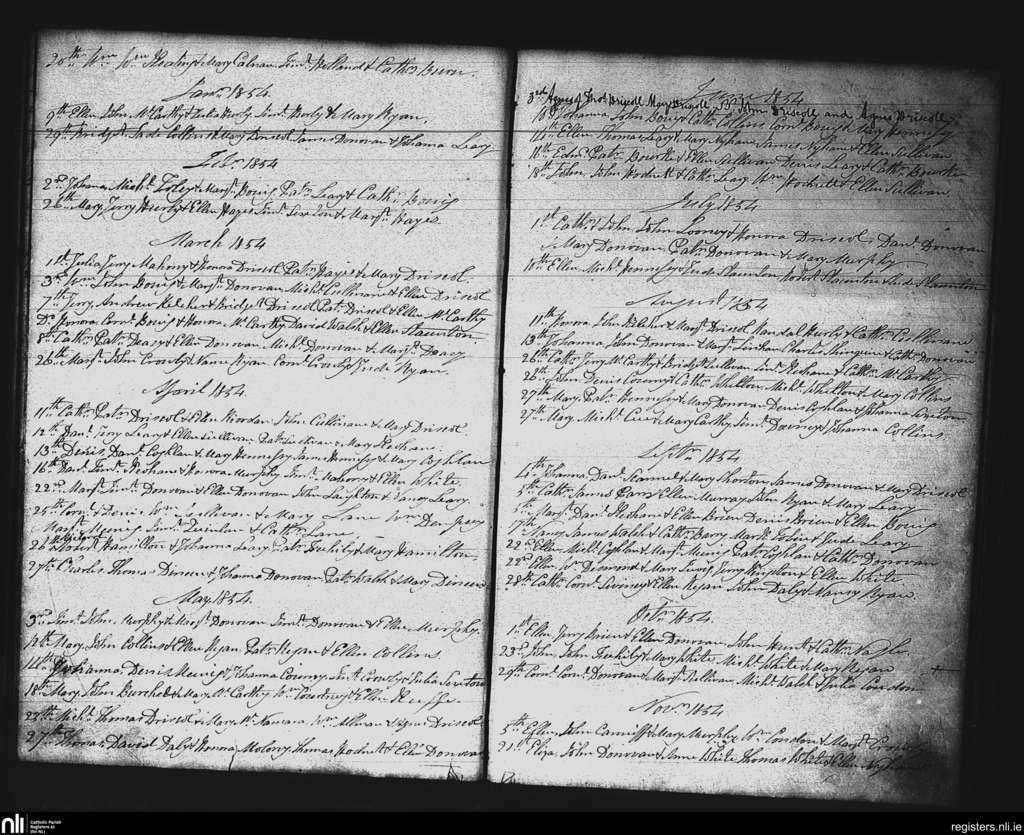 20th Wm Wm Keating & Mary Calnan Timy Holland & Cathn Burn.
Jany 1854
9th Ellen John McCarthy & Julia Herly Timy Herly & Mary Ryan.
29th Bridgt Collins & Mary Driscol James Donovan & Johanna Leary
Feby 1854
2nd Johanna Michl Foley & Margt Bowig Patk Leary & Cathn Bowig
26th Mary Jerry Herly & Ellen Hayes Timy & Margt Hayes
March 1854
1st Julia Jerry Mahony & Honora Driscol Patk Hayes & Mary Driscol.
3rd Wm John Bowig & Margt Donovan Michl Cullinane & Ellen Driscol
7th Jerry Andrew Keleher & Bridget Driscol Pat Driscol & Ellen McCarthy
Do Honora Corns Bowig & Honora McCarthy David Walsh & Ellen Staunton
8th Cathn Patk Deacy & Ellen Donovan Michl Donovan & Margt Deacy
26th Margt John Crowly & Nanne Ryan Corns Crowly & Jude Ryan.
April 1854
11th Cathn Patk Driscol & Ellen Riordan John Cullinan & Mary Driscol.
12th Danl Jerry Leary & Ellen Sullivan Patk Sullivan & Mary Keohane
13th Denis Danl Coghlan & Mary Hennessy James Hennessy & Mary Coghlan
16th Danl Timy Keohane & Honora Murphy Timy Mahony & Ellen White
22nd Margt Timy Donovan & Ellen Donovan John Leighton & Nancy Leary.
25th Corns & Denis Wm Sullivan & Mary Lane Wm Dempsey
Margt Meenig Timy Quinlan & Cathn Lane
26th Robert Hamilton & Johanna Leary Patk Feehily & Mary Hamilton
27th Charles Thomas Dineen & Johanna Donovan Patk Walsh & Mary Dineen
May 1854.
3rd Timy John Murphy & Margt Donovan Timy Donovan & Ellen Murphy.
12th Mary John Collins & Ellen Regan Patk Regan & Ellen Collins
14th Johanna Denis Meenig & Johanna Coveny Crowly & Julia Sexton
18th Mary John Burchel & Mary McCarthy Wm Courtney & Ellen Keeffe.
23th Michl Thomas Driscol & Mary McNamara Wm & Agnes Driscol
27th Thomas David Daly & Honora Molony Thomas Hodnett & Ellen Donovan
June 1854
3rd Agnes of Thos Driscoll Mary Driscoll Sp John Driscoll and Agnes Driscoll
10th Johanna John Bowig & Cathn Collins Corns Bowig & Mary Hennessy
11th Ellen Thomas Leary & Mary Nyhan James Nyhan & Ellen Sullivan
11th Edmd Patk Bourke & Ellen Sullivan Denis Leary & Cathn Bourke
18th John John Hodnett & Cathn Leary Wm Hodnett & Ellen Sullivan
July 1854
1st Cathn & John John Looney & Honora Driscol, Danl Donovan
& Mary Donovan Patk Donovan & Mary Murphy
10th Ellen Michl Hennessy & Jude Staunton Robert Staunton Jude Staunton
August 1854
11th Honora John Keleher & Margt Driscol Randal Herly & Cathn Cullinane
13th Johanna John Donovan & Margt Charles & Cathn Donovan
26th Cathn Jerry McCarthy & Bridgt Sullivan Timy Keohane & Cathn McCarthy
26th John Denis Coveny & Cathn Whelton Michl Whelton & Mary Collins
27th Mary Patk Hennessy & Mary Donovan Denis Coghlan & Johanna Sexton
27th Mary Michl & Mary Carthy Timy Downey & Johanna Collins
Septr 1854
4th Johanna Danl & Mary James Donovan & Mary Driscol
5th Cathn James Barry Ellen Murray John Ryan & Mary Leary
5th Margt Danl Keohane & Ellen Brien Denis Brien & Ellen Bowig
17th Nancy James Walsh & Cathn Barry Mark Tobin & Jude Leary
22nd Ellen Michl Coghlan & Margt Meenig Patk Coghlan & Cathn Donovan
22nd Ellen Wm Desmond & Mary Jerry Kingston & Ellen White
28th Cathn Corns Sweeney & Ellen Regan John Daly & Nancy Ryan.
Octr 1854.
1st Ellen Jerry Brien & Ellen Donovan John Hunt & Cathn
23rd John John Feehily & Mary White Michl White & Mary Ryan
29th Corns Corns Donovan & Margt Sullivan Michl Walsh & Julia Condon
Novr 1854
5th Ellen John Canniff & Mary Murphy Wm Condon & Margt
21st Eliza John Donovan & Jane White Thomas White & Ellen Nyhan
nli
Catholic Parish
Registers at
the NLI
registers.nli.ie